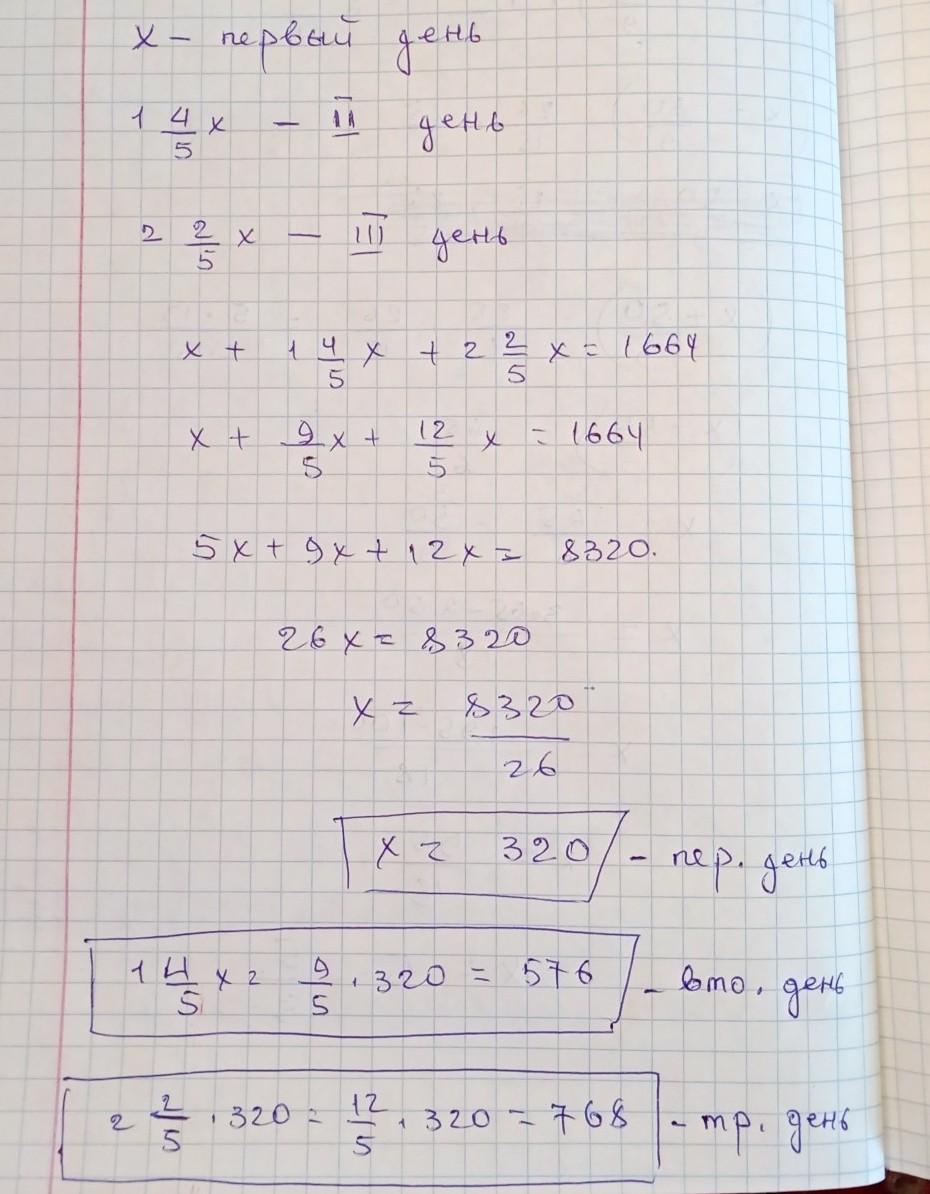 x – первый день
1 4/5 x – II день
2 2/5 x – III день
x + 1 4/5 x + 2 2/5 x = 1664
x + 9/5 x + 12/5 x = 1664
5x + 9x + 12x = 8320.
26x = 8320
x = 8320/26
x = 320 – пер. день
1 4/5 x = 9/5 · 320 = 576 – вто. день
2 2/5 · 320 = 12/5 · 320 = 768 – тр. день